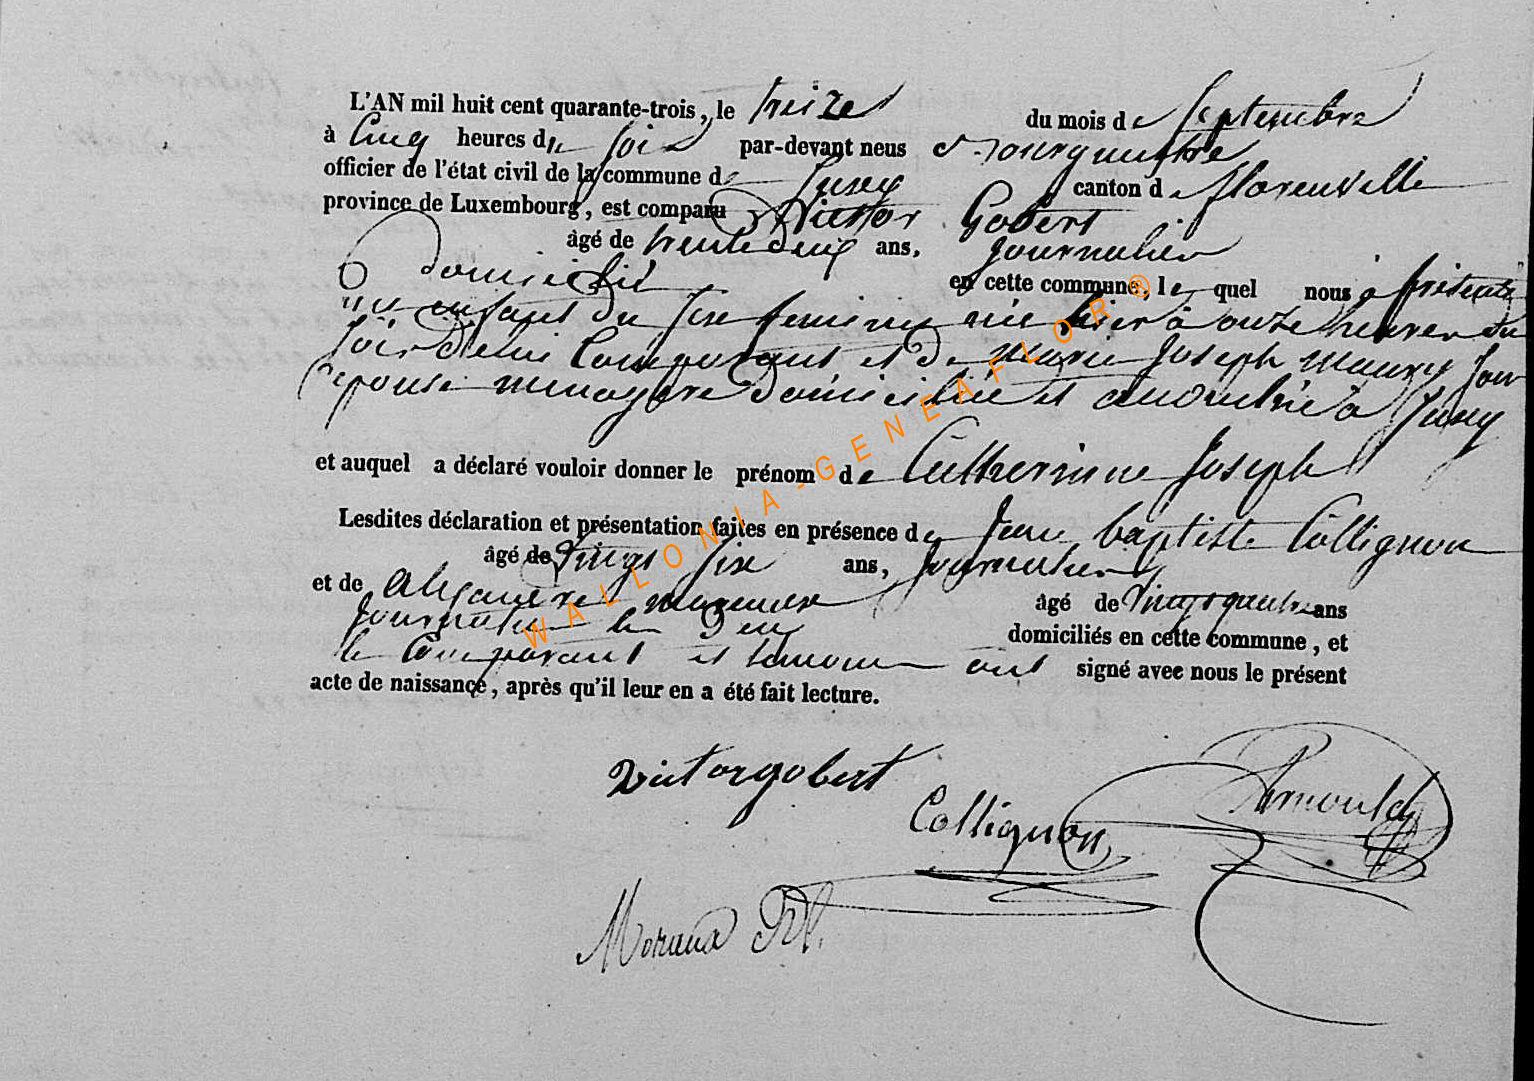 L'AN mil huit cent quarante-trois, le treize du mois de Septembre
à Cinq heures du soir par-devant nous Bourguestre
officier de l'état civil de la commune de Jusey canton de florenville
province de Luxembourg, est comparu Victor Gobert
âgé de trente deux ans, journalier
domicilié en cette commune, lequel nous a présenté
un enfant du sexe feminin née hier à onze heures du
soir de lui Comparant et de Marie Joseph Maury son
épouse menagere domiciliée et à Jusey
et auquel a déclaré vouloir donner le prénom de Catherinne Joseph
Lesdites déclaration et présentation faites en présence de Jean baptiste Collignon
âgé de vingt six ans, journalier
et de âgé de vingt quatre ans
journalier les deux domiciliés en cette commune, et
le Comparant et temoins ont signé avec nous le présent
acte de naissance, après qu'il leur en a été fait lecture.
victorgobert
Collignon
Arnould
WALLONIA-GENEAFLOR®